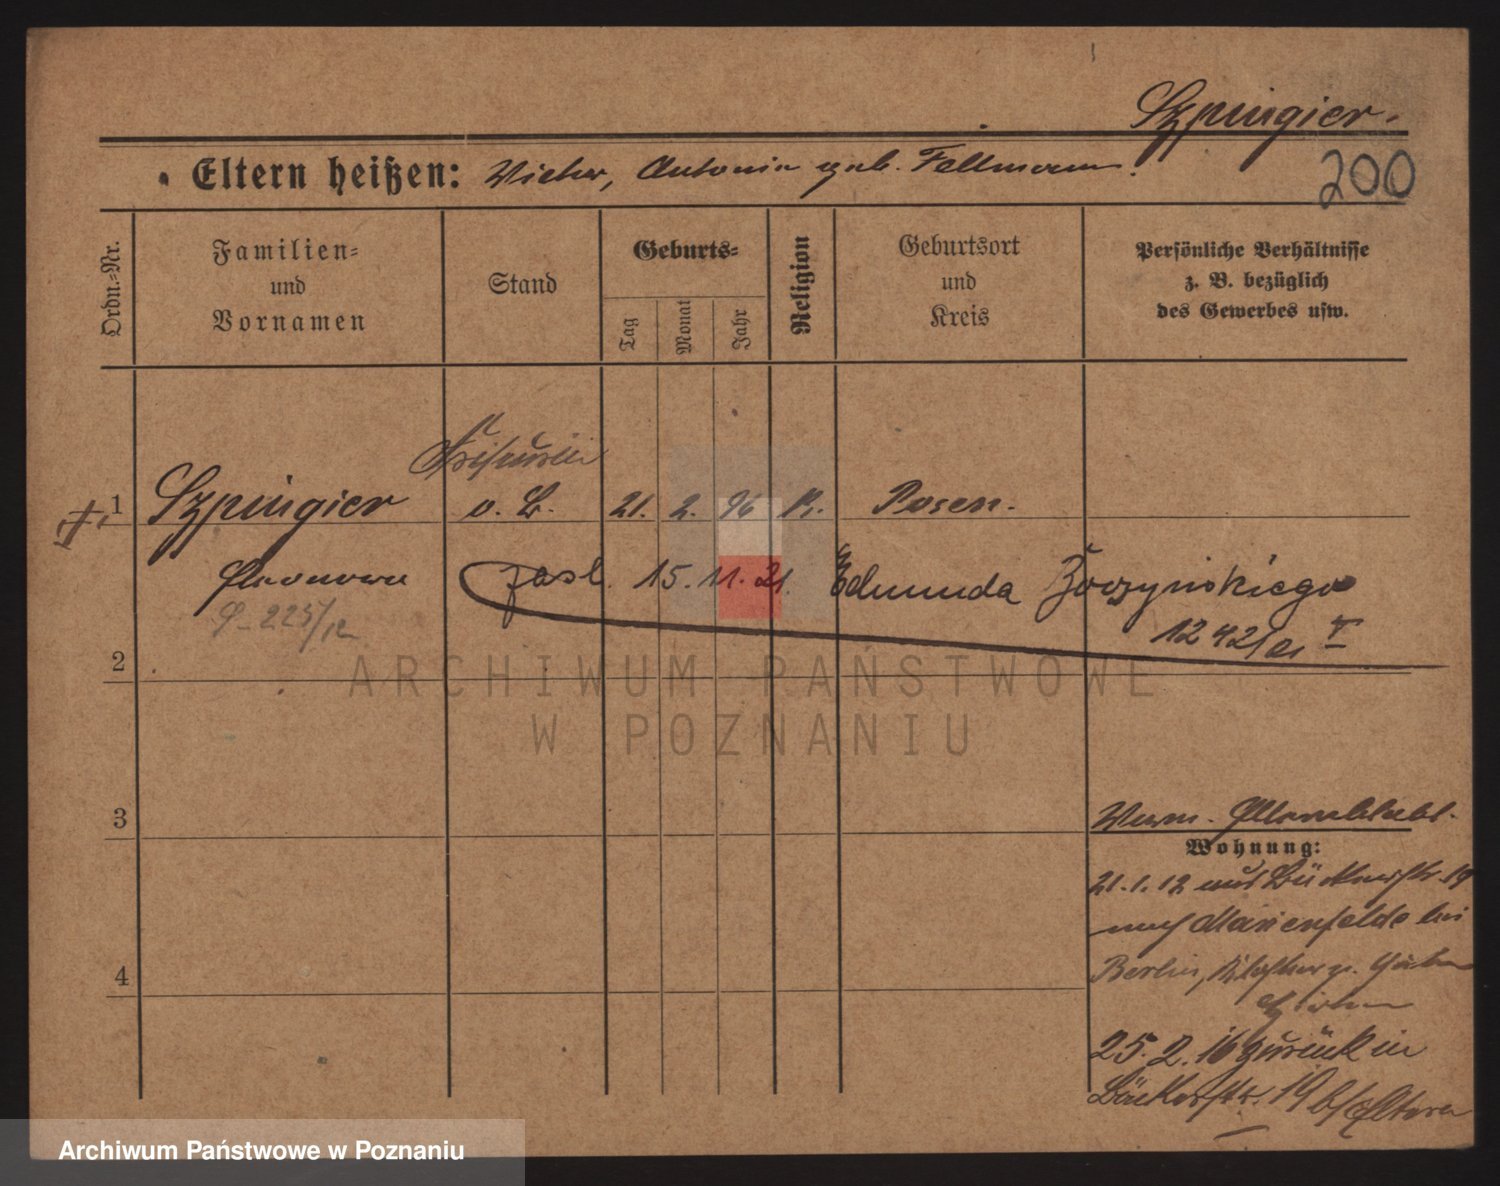 Szpingier.
Eltern heißen: Victor, Antonie geb. Fellmann.
200
Ordn.-Nr.
Familien- und Vornamen
Stand
Geburts-
Tag
Monat
Jahr
Religion
Geburtsort und Kreis
Persönliche Verhältnisse z. B. bezüglich des Gewerbes usw.
1 Szpingier o. B. 21. 2. 96 K. Posen.
zasl. 15. 11. 21. Edmunda Żoczyńskiego
1242/21 V
2
3
4
Wohnung:
21. 1. 12 aus Bäckerstr. 19
nach Marienfelde bei
Berlin,
25. 2. 16 zurück in
Bäckerstr. 19 b/ Eltern
ARCHIWUM PAŃSTWOWE
W POZNANIU
Archiwum Państwowe w Poznaniu